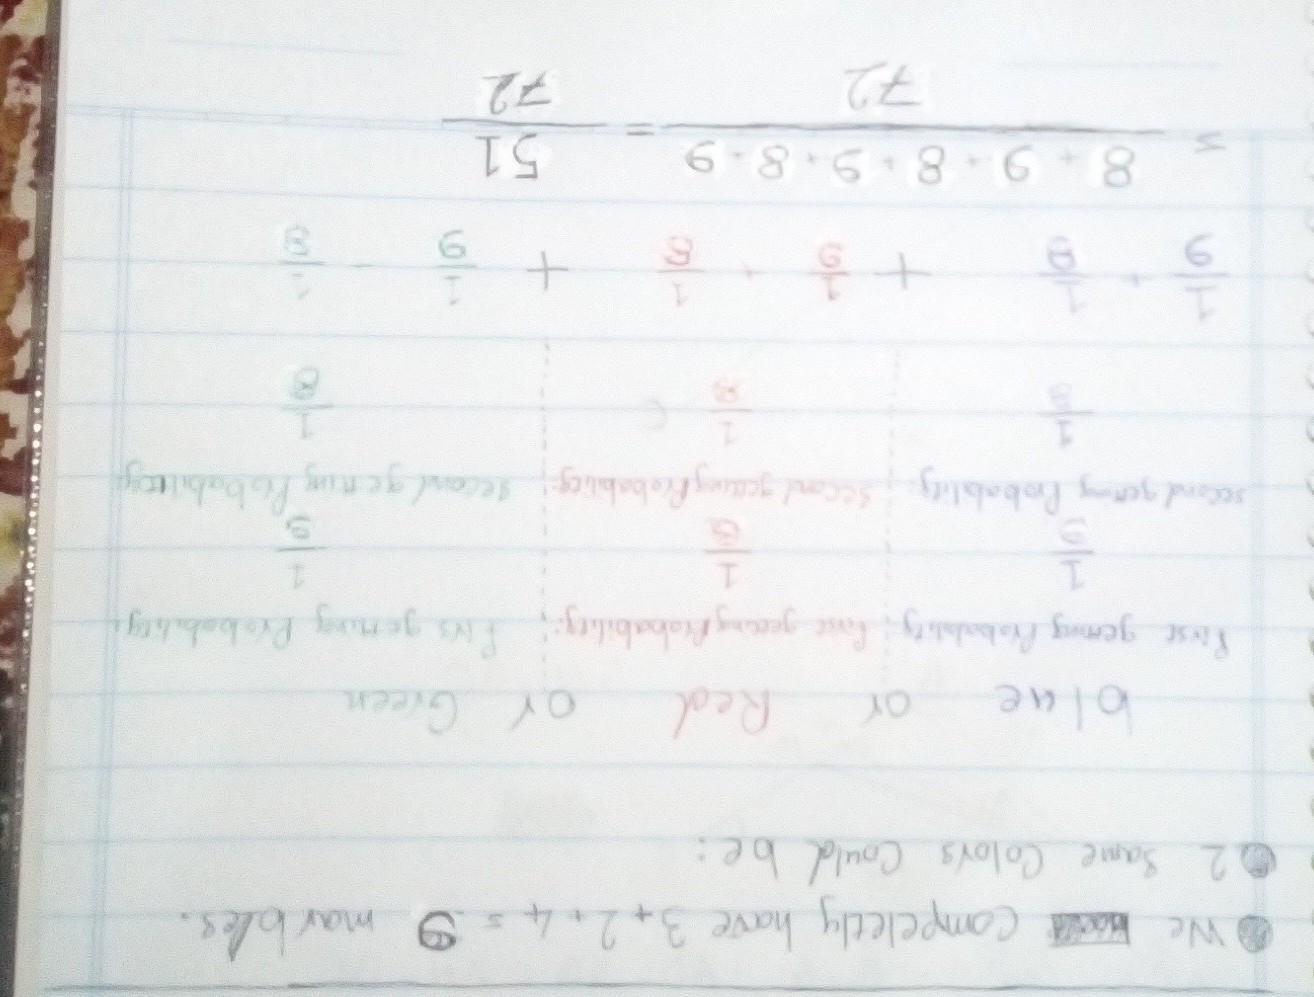 We Compeletly have 3 + 2 + 4 = 9 marbles.
2 Same Colors Could be:
blue or Red or Green
First getting Probability: First getting Probability: Firs getting Probability:
1/9 1/9 1/9
second getting Probability: second getting Probability: second getting Probability:
1/8 1/8 1/8
1/9 + 1/8 + 1/9 + 1/8 + 1/9 + 1/8
= 8 + 9 + 8 + 9 + 8 + 9 / 72 = 51/72